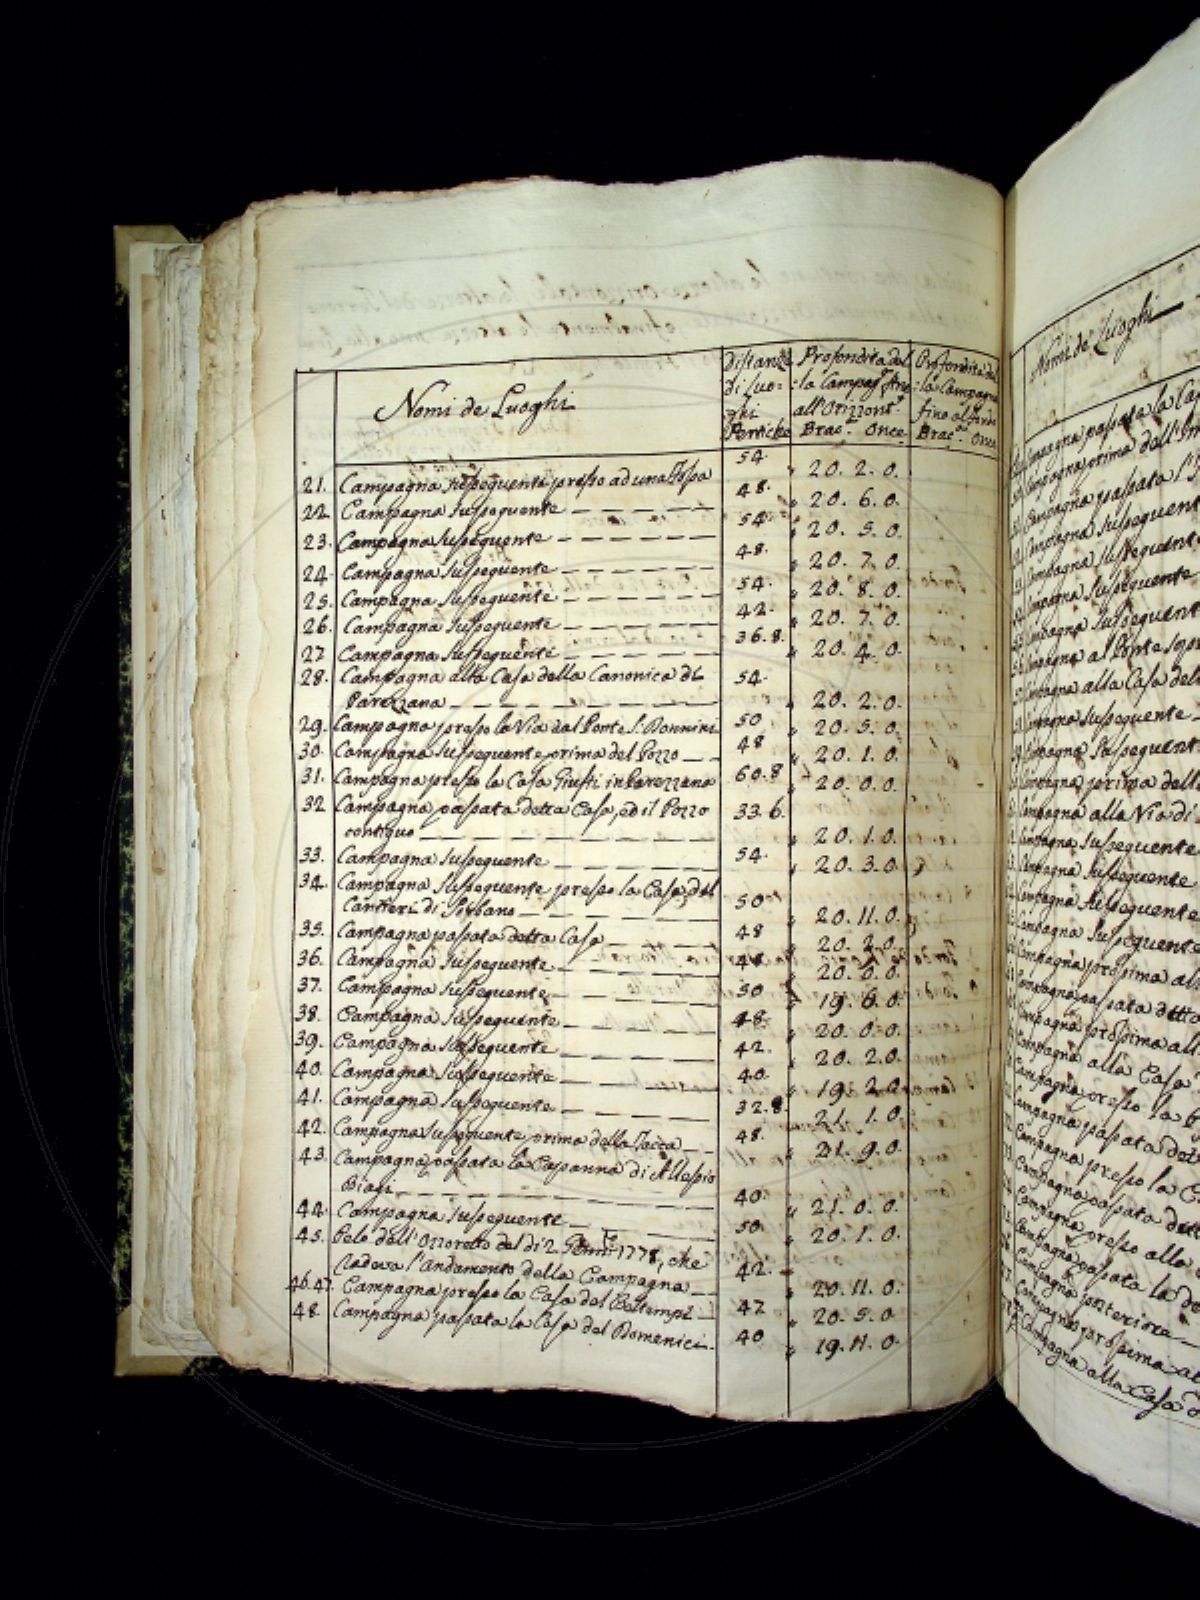 Nomi de Luoghi
Distanze di Luoghi Pertiche
Profondita del la Campag.^a all'Orizzont.^e Brac.^a Once
Profondita del la Campagna fino al fondo Brac.^a Once
21. Campagna susseguente presso ad una Fossa 54. 20. 2. 0.
22. Campagna susseguente 48. 20. 6. 0.
23. Campagna susseguente 54. 20. 5. 0.
24. Campagna susseguente 48. 20. 7. 0.
25. Campagna susseguente 54. 20. 8. 0.
26. Campagna susseguente 42. 20. 7. 0.
27 Campagna susseguente 36.8. 20. 4. 0.
28. Campagna alla Casa della Canonica di 54.
Parezzana 20. 2. 0.
29. Campagna presso la Via dal Ponte S. Donnini 50 20. 5. 0.
30. Campagna susseguente prima del Pozzo 48 20. 1. 0.
31. Campagna presso la Casa Giusti in Parezzana 60.8 20. 0. 0.
32 Campagna passata detta Casa, ed il Pozzo 33.6.
contiguo 20. 1. 0.
33. Campagna susseguente 54. 20. 3. 0.
34. Campagna susseguente presso la Casa del 50
di Sorbano 20. 11. 0.
35. Campagna passata detta Casa 48 20. 2. 0.
36. Campagna susseguente 48. 20. 0. 0.
37. Campagna susseguente 50 19. 6. 0.
38. Campagna susseguente 48. 20. 0. 0.
39. Campagna susseguente 42. 20. 2. 0.
40. Campagna susseguente 40. 19. 2. 0.
41. Campagna susseguente 32.8. 21. 1. 0.
42. Campagna susseguente prima della 48. 21. 9. 0.
43. Campagna passata la Capanna di Alessio
Biagi 40. 21. 0. 0.
44. Campagna susseguente 50. 20. 1. 0.
45. Pelo dell'Ozzoretto del di 2. Genn. 1778, che
radeva l'andamento della Campagna 42. 20. 11. 0.
46.47. Campagna presso la Casa del 42 20. 5. 0
48. Campagna passata la Casa del Domenici 40 19. 11. 0.
Nomi de Luoghi
Campagna passata la
Campagna prima dell'
Campagna passata
Campagna susseguent
Campagna susseguente
Campagna susseguente
Campagna susseguent
Campagna al Ponte
Campagna alla Casa del
Campagna susseguente
Campagna susseguent
Campagna prima dell
Campagna alla Via di
Campagna susseguente
Campagna susseguente
Campagna susseguente
Campagna susseguente
Campagna prossima al
Campagna passata detta
Campagna prossima all
Campagna alla Casa
Campagna presso la
Campagna passata det
Campagna presso la
Campagna passata dett
Campagna presso alla
Campagna passata la
Campagna posteriore
Campagna prossima al
Campagna alla Casa